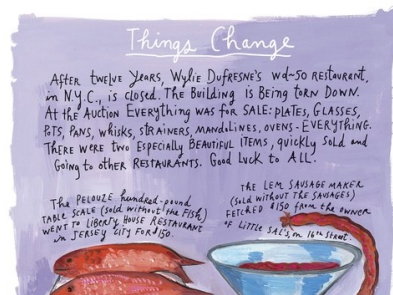 Things Change
After twelve Years, Wylie Dufresne's wd~50 restaurant,
in N.Y.C., is closed. The Building is Being torn Down.
At the Auction Everything was for SALE: plates, Glasses,
Pots, Pans, whisks, strainers, mandolines, ovens - Everything.
There were two Especially Beautiful items, quickly Sold and
Going to other Restaurants. Good Luck to All.
The Pelouze hundred-pound
table scale (sold without the fish)
went to Liberty House Restaurant
in Jersey City for $150.
The LEM Sausage Maker
(sold without the sausages)
fetched $150 from the owner
of Little Sal's, on 16th Street.